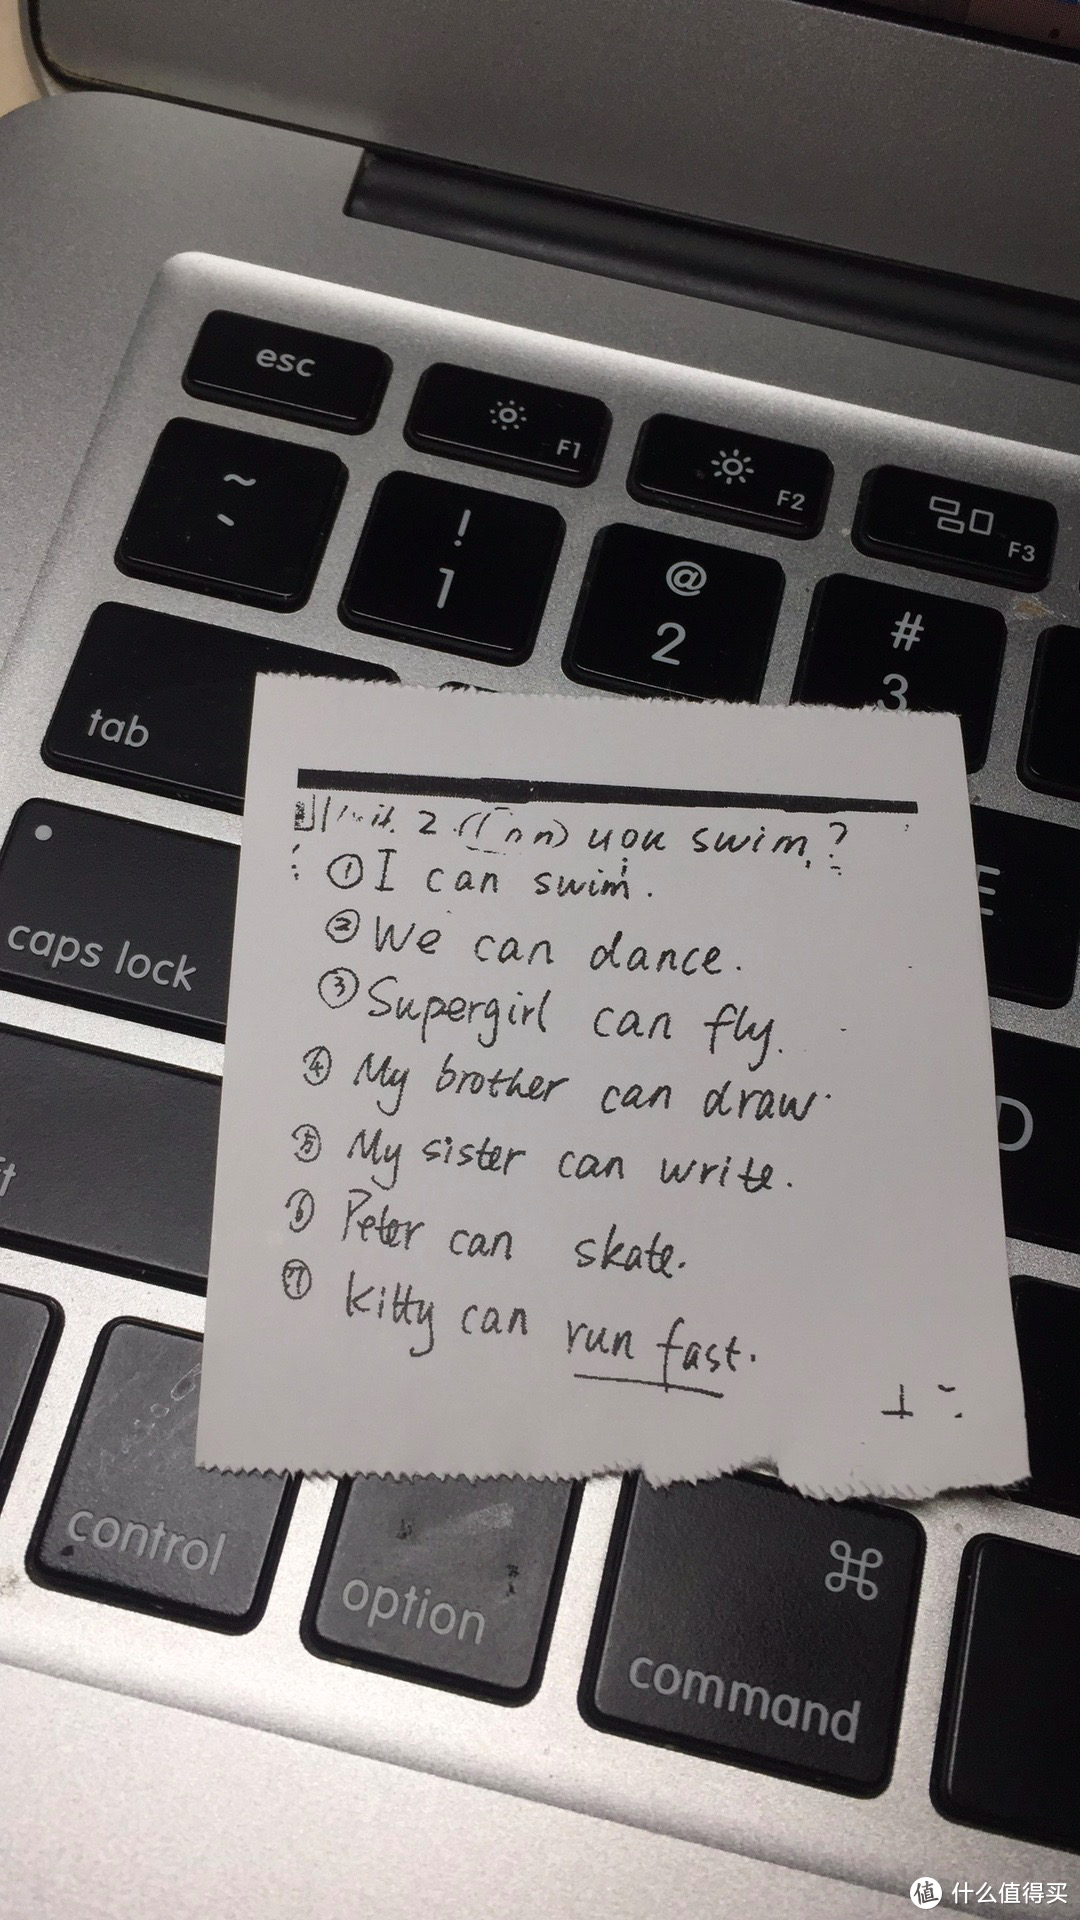 esc
F1
F2
F3
~
`
!
1
@
2
#
3
tab
2 you swim?
① I can swim.
② We can dance.
caps lock
③ Supergirl can fly.
④ My brother can draw.
D
⑤ My sister can write.
⑥ Peter can skate.
⑦ Kitty can run fast.
control
option
⌘
command
值 什么值得买